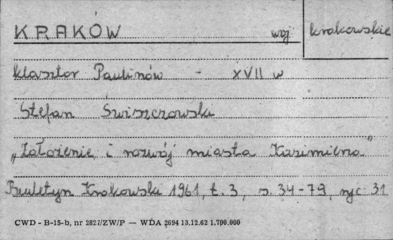 KRAKÓW woj krakowskie
klasztor Paulinów - XVII w
Stefan Świszczowski
„Założenie i rozwój miasta Kazimierza"
Biuletyn Krakowski 1961, t. 3, s. 34-79, ryc 31
CWD - B-15-b, nr 2827/ZW/P — WDA 2694 13.12.62 1.700.000